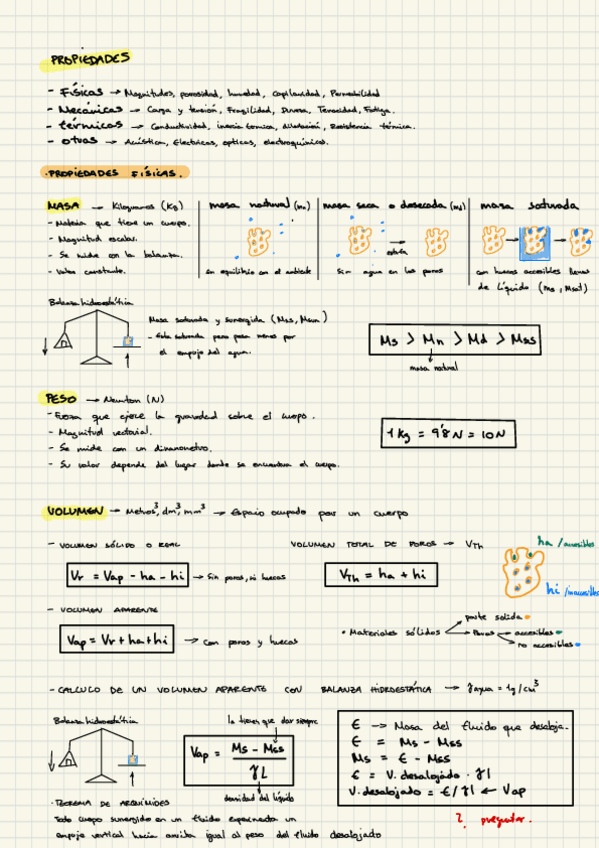 PROPIEDADES
- Físicas → Magnitudes, porosidad, humedad, capilaridad, Permeabilidad
- Mecánicas → Carga y tensión, Fragilidad, Dureza, Tenacidad, Fatiga.
- térmicas → Conductividad, inercia térmica, dilatación, Resistencia térmica.
- otras → Acústica, Electricas, opticas, electroquímicas.
· PROPIEDADES FÍSICAS.
MASA → Kilogramos (Kg)
- Materia que tiene un cuerpo.
- Magnitud escalar.
- Se mide con la balanza.
- Valor constante.
masa natural (mn)
en equilibrio con el ambiente
masa seca o desecada (md)
estufa
Sin agua en los poros
masa saturada
con huecos accesibles llenos
de líquido (ms, Msat)
Balanza hidroestática
Masa saturada y sumergida (Mss, Msum)
- Esta saturada pero pesa menos por
el empuje del agua.
Ms > Mn > Md > Mss
masa natural
PESO → Newton (N)
- Fuerza que ejerce la gravedad sobre el cuerpo.
- Magnitud vectorial.
- Se mide con un dinamometro.
- Su valor depende del lugar donde se encuentra el cuerpo.
1 Kg = 9'8 N = 10N
VOLUMEN → Metros³, dm³, mm³ → Espacio ocupado por un cuerpo
- VOLUMEN SÓLIDO O REAL
Vr = Vap - ha - hi → Sin poros, ni huecos
VOLUMEN TOTAL DE POROS → VTh
VTh = ha + hi
ha / accesibles
hi / inaccesibles
- VOLUMEN APARENTE
Vap = Vr + ha + hi → Con poros y huecos
· Materiales sólidos
parte solida
Poros
accesibles
no accesibles
- CALCULO DE UN VOLUMEN APARENTE CON BALANZA HIDROESTÁTICA → γagua = 1g/cm³
Balanza hidroestática
la tienes que dar siempre
Vap = Ms - Mss / γL
densidad del líquido
E → Masa del fluido que desaloja.
E = Ms - Mss
Ms = E - Mss
E = V. desalojado · γl
V. desalojado = E/γl ← Vap
· TEOREMA DE ARQUÍMIDES
Todo cuerpo sumergido en un fluido experimenta un
empuje vertical hacia arriba igual al peso del fluido desalojado
? preguntar.